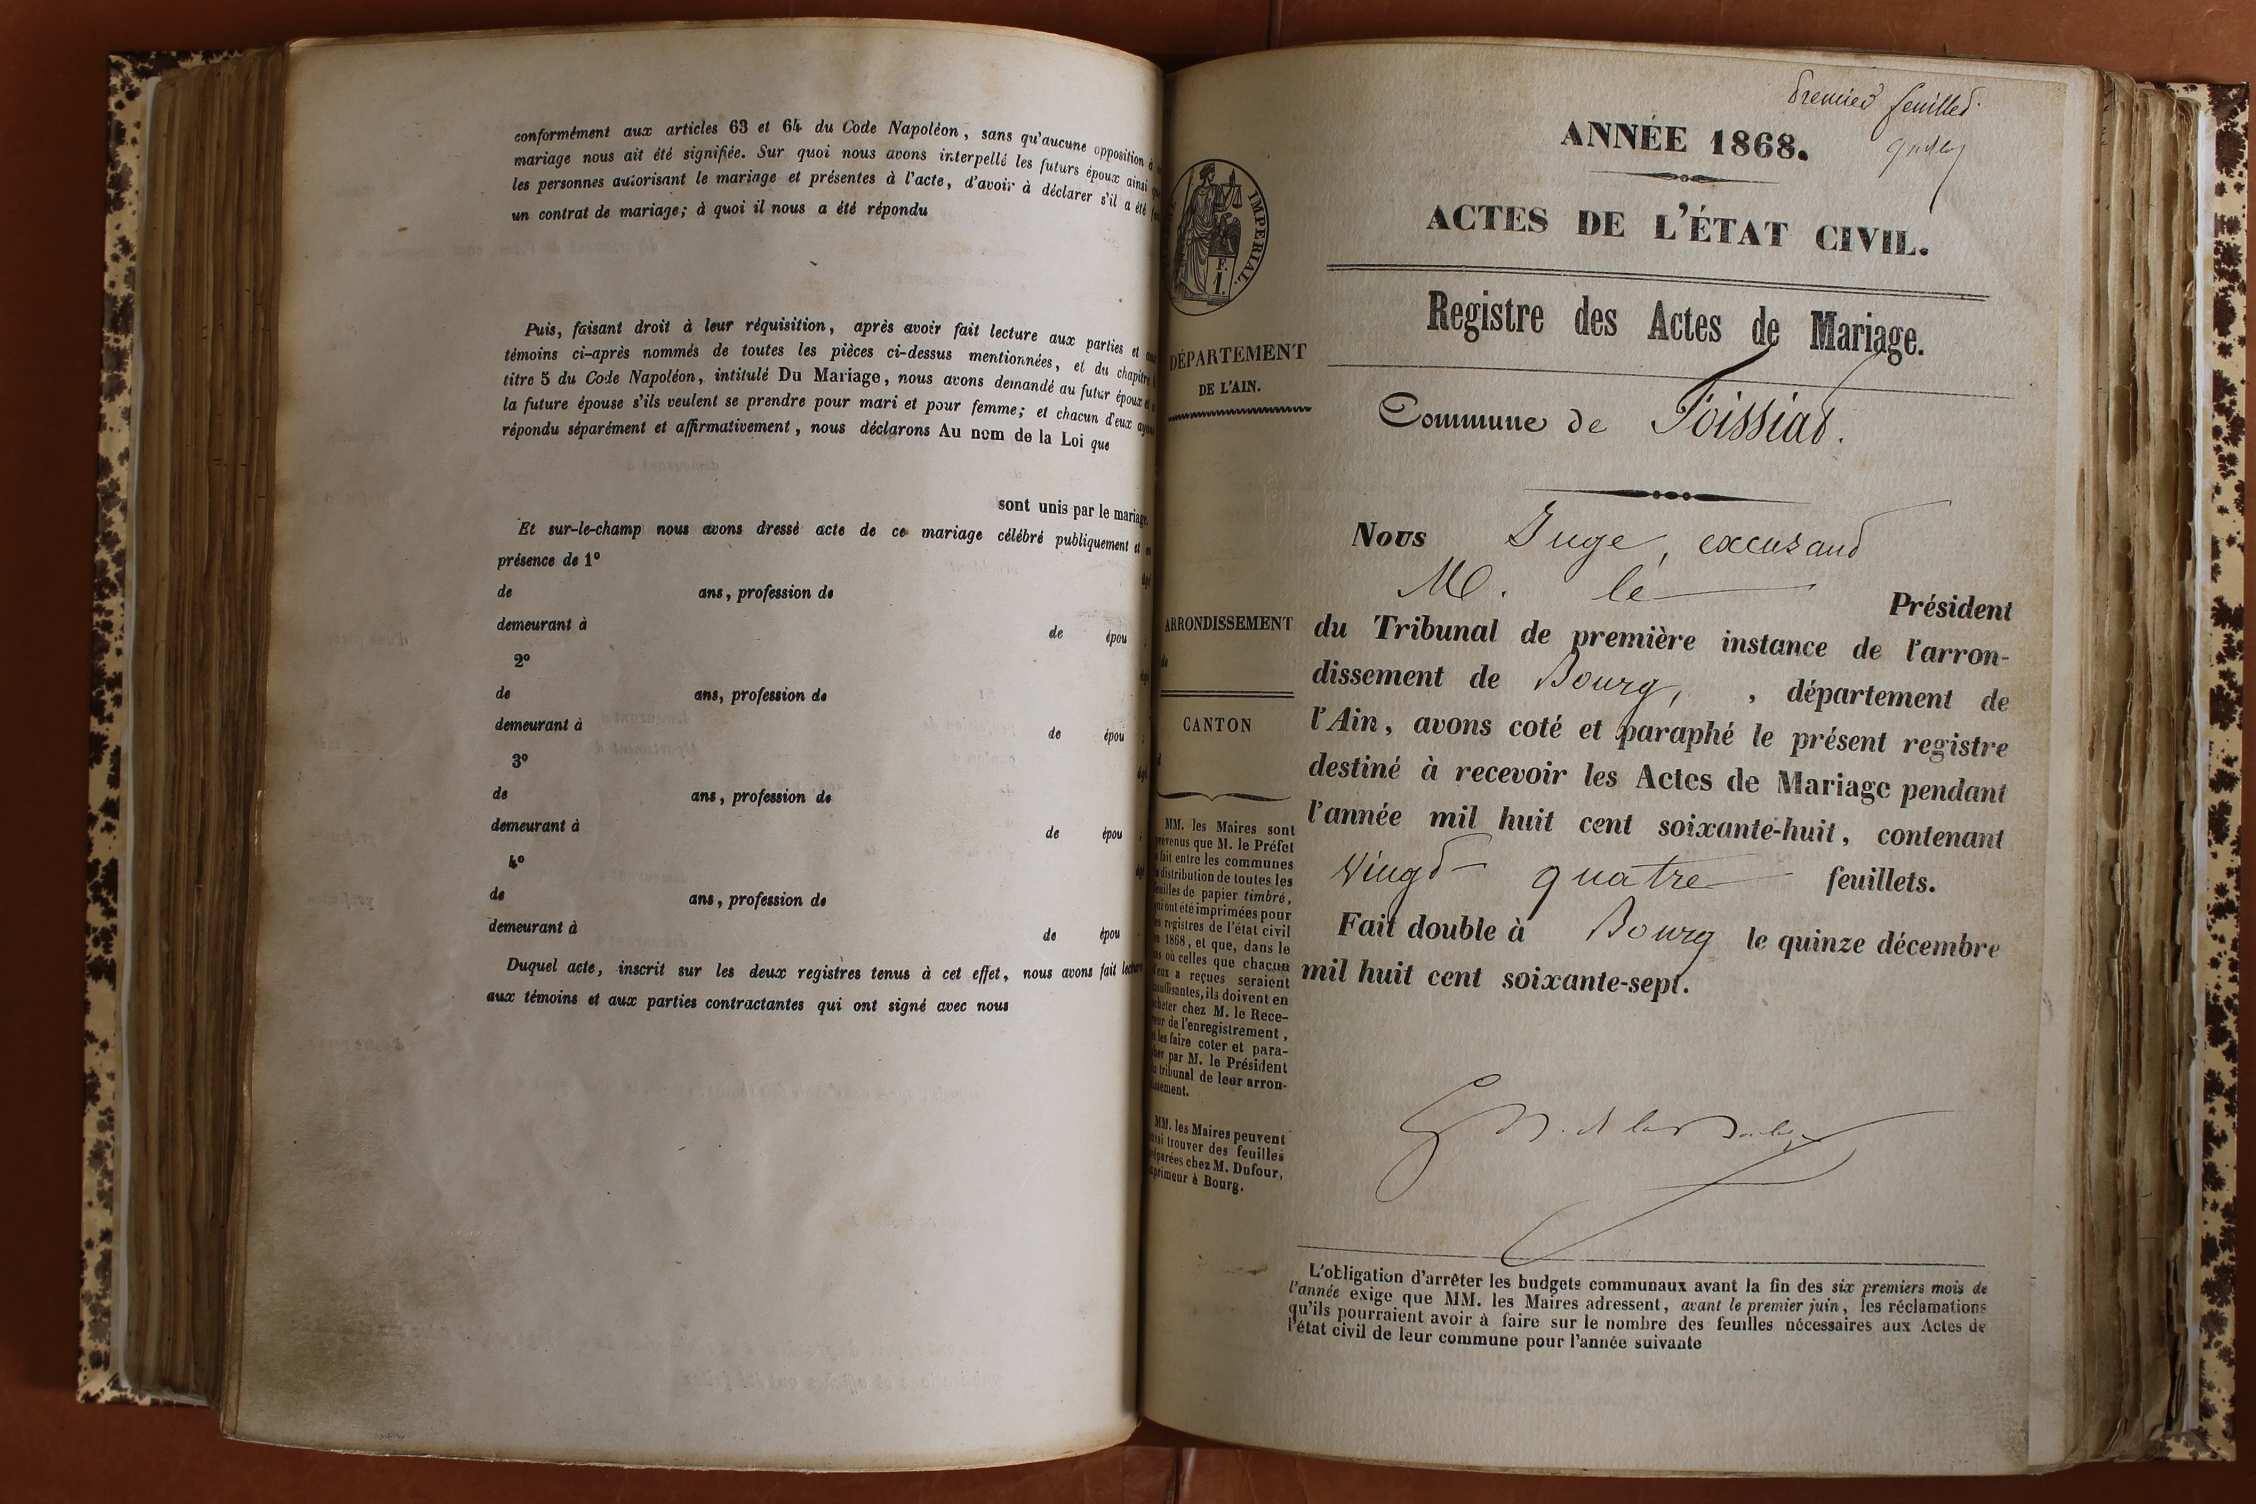 conformément aux articles 63 et 64 du Code Napoléon, sans qu'aucune opposition à
mariage nous ait été signifiée. Sur quoi nous avons interpellé les futurs époux ainsi que
les personnes autorisant le mariage et présentes à l'acte, d'avoir à déclarer s'il a été
un contrat de mariage; à quoi il nous a été répondu
Puis, faisant droit à leur réquisition, après avoir fait lecture aux parties et aux
témoins ci-après nommés de toutes les pièces ci-dessus mentionnées, et du chapitre
titre 5 du Code Napoléon, intitulé Du Mariage, nous avons demandé au futur époux et
la future épouse s'ils veulent se prendre pour mari et pour femme; et chacun d'eux ayant
répondu séparément et affirmativement, nous déclarons Au nom de la Loi que
sont unis par le mariage.
Et sur-le-champ nous avons dressé acte de ce mariage célébré publiquement et en
présence de 1º
dépt
de ans, profession de
demeurant à
de épou ;
2º
dépt
de ans, profession de
demeurant à
de épou ;
3º
dépt
de ans, profession de
demeurant à
de épou ;
4º
dépt
de ans, profession de
demeurant à
de épou .
Duquel acte, inscrit sur les deux registres tenus à cet effet, nous avons fait lecture
aux témoins et aux parties contractantes qui ont signé avec nous
Premier feuillet.
ANNÉE 1868.
ACTES DE L'ÉTAT CIVIL.
IMPERIAL.
F.
1.
Registre des Actes de Mariage.
DÉPARTEMENT
DE L'AIN.
Commune de Foissiat.
Nous Juge, excusant
M. le Président
du Tribunal de première instance de l'arron-
dissement de Bourg, , département de
l'Ain, avons coté et paraphé le présent registre
destiné à recevoir les Actes de Mariage pendant
l'année mil huit cent soixante-huit, contenant
Vingt quatre feuillets.
Fait double à Bourg le quinze décembre
mil huit cent soixante-sept.
ARRONDISSEMENT
de
CANTON
d
MM. les Maires sont
prévenus que M. le Préfet
a fait entre les communes
la distribution de toutes les
feuilles de papier timbré,
qui ont été imprimées pour
les registres de l'état civil
en 1868, et que, dans le
cas où celles que chacun
d'eux a reçues seraient
insuffisantes, ils doivent en
acheter chez M. le Rece-
veur de l'enregistrement,
et les faire coter et para-
pher par M. le Président
du tribunal de leur arron-
dissement.
MM. les Maires peuvent
aussi trouver des feuilles
séparées chez M. Dufour,
imprimeur à Bourg.
L'obligation d'arrêter les budgets communaux avant la fin des six premiers mois de
l'année exige que MM. les Maires adressent, avant le premier juin, les réclamations
qu'ils pourraient avoir à faire sur le nombre des feuilles nécessaires aux Actes de
l'état civil de leur commune pour l'année suivante